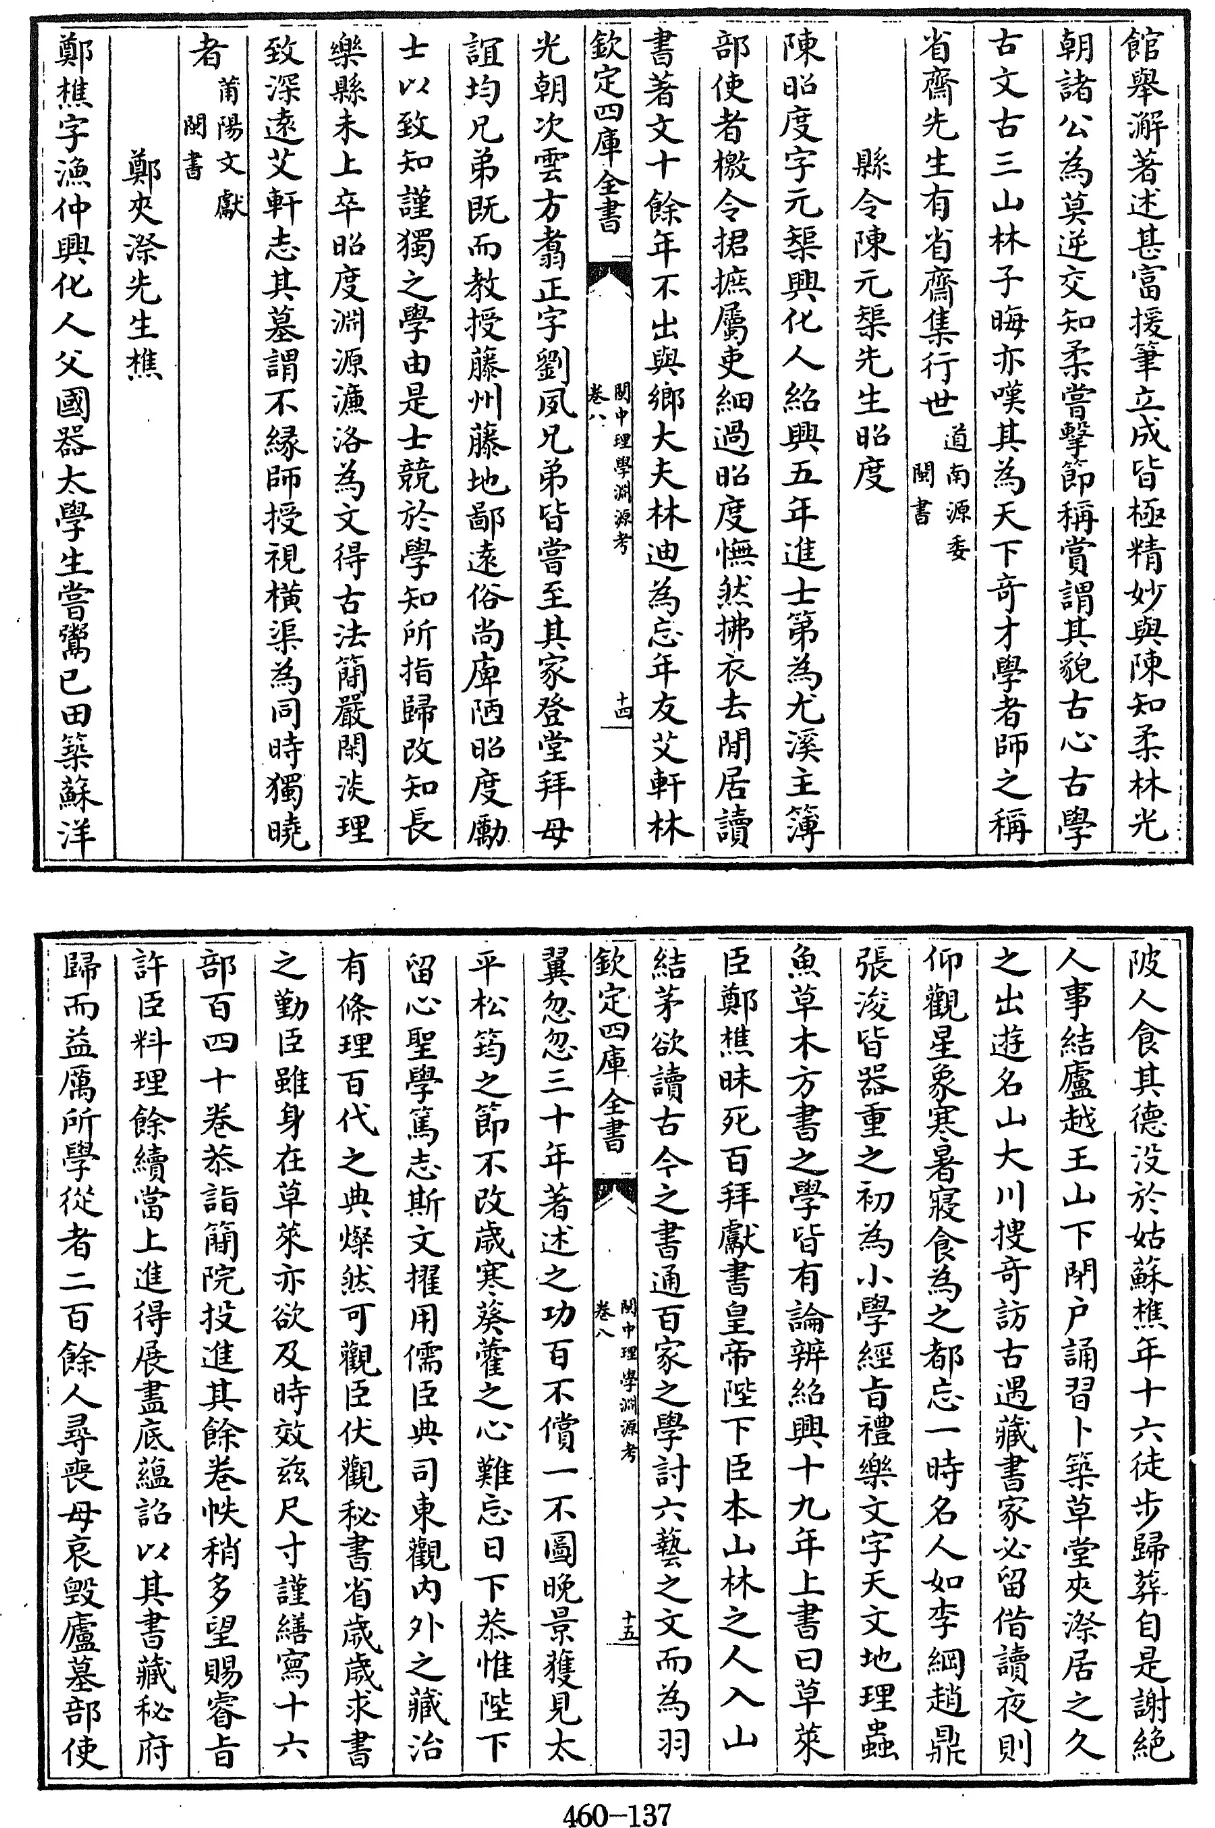 館舉澥著述甚富援筆立成皆極精妙與陳知柔林光
朝諸公為莫逆交知柔嘗擊節稱賞謂其貌古心古學
古文古三山林子晦亦嘆其為天下奇才學者師之稱
省齋先生有省齋集行世道南源委
閩書
縣令陳元榘先生昭度
陳昭度字元榘興化人紹興五年進士第為尤溪主簿
部使者檄令捃摭屬吏細過昭度憮然拂衣去閒居讀
書著文十餘年不出與鄉大夫林迪為忘年友艾軒林
欽定四庫全書
閩中理學淵源考
卷八
十四
光朝次雲方翥正字劉夙兄弟皆嘗至其家登堂拜母
誼均兄弟既而教授藤州藤地鄙遠俗尚庳陋昭度勵
士以致知謹獨之學由是士競於學知所指歸改知長
樂縣未上卒昭度淵源濂洛為文得古法簡嚴閑淡理
致深遠艾軒志其墓謂不緣師授視橫渠為同時獨曉
者莆陽文獻
閩書
鄭夾漈先生樵
鄭樵字漁仲興化人父國器太學生嘗鬻已田築蘇洋
陂人食其德没於姑蘇樵年十六徒步歸葬自是謝絶
人事結廬越王山下閉户誦習卜築草堂夾漈居之久
之出遊名山大川搜奇訪古遇藏書家必留借讀夜則
仰觀星象寒暑寢食為之都忘一時名人如李綱趙鼎
張浚皆器重之初為小學經旨禮樂文字天文地理蟲
魚草木方書之學皆有論辨紹興十九年上書曰草萊
臣鄭樵昧死百拜獻書皇帝陛下臣本山林之人入山
結茅欲讀古今之書通百家之學討六藝之文而為羽
欽定四庫全書
閩中理學淵源考
卷八
十五
翼忽忽三十年著述之功百不償一不圖晚景獲見太
平松筠之節不改歲寒葵藿之心難忘日下恭惟陛下
留心聖學篤志斯文擢用儒臣典司東觀内外之藏治
有條理百代之典燦然可觀臣伏觀秘書省歲歲求書
之勤臣雖身在草萊亦欲及時效兹尺寸謹繕寫十六
部百四十卷恭詣簡院投進其餘卷帙稍多望賜睿旨
許臣料理餘續當上進得展盡底藴詔以其書藏秘府
歸而益厲所學從者二百餘人尋喪母哀毁廬墓部使
460-137